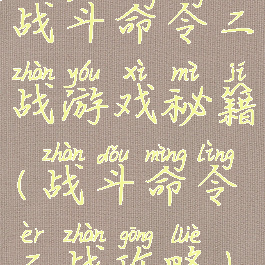 战斗命令二
zhàn yóu xì mì jí
战游戏秘籍
zhàn dòu mìng lìng
(战斗命令
èr zhàn gōng lüè
二战攻略)